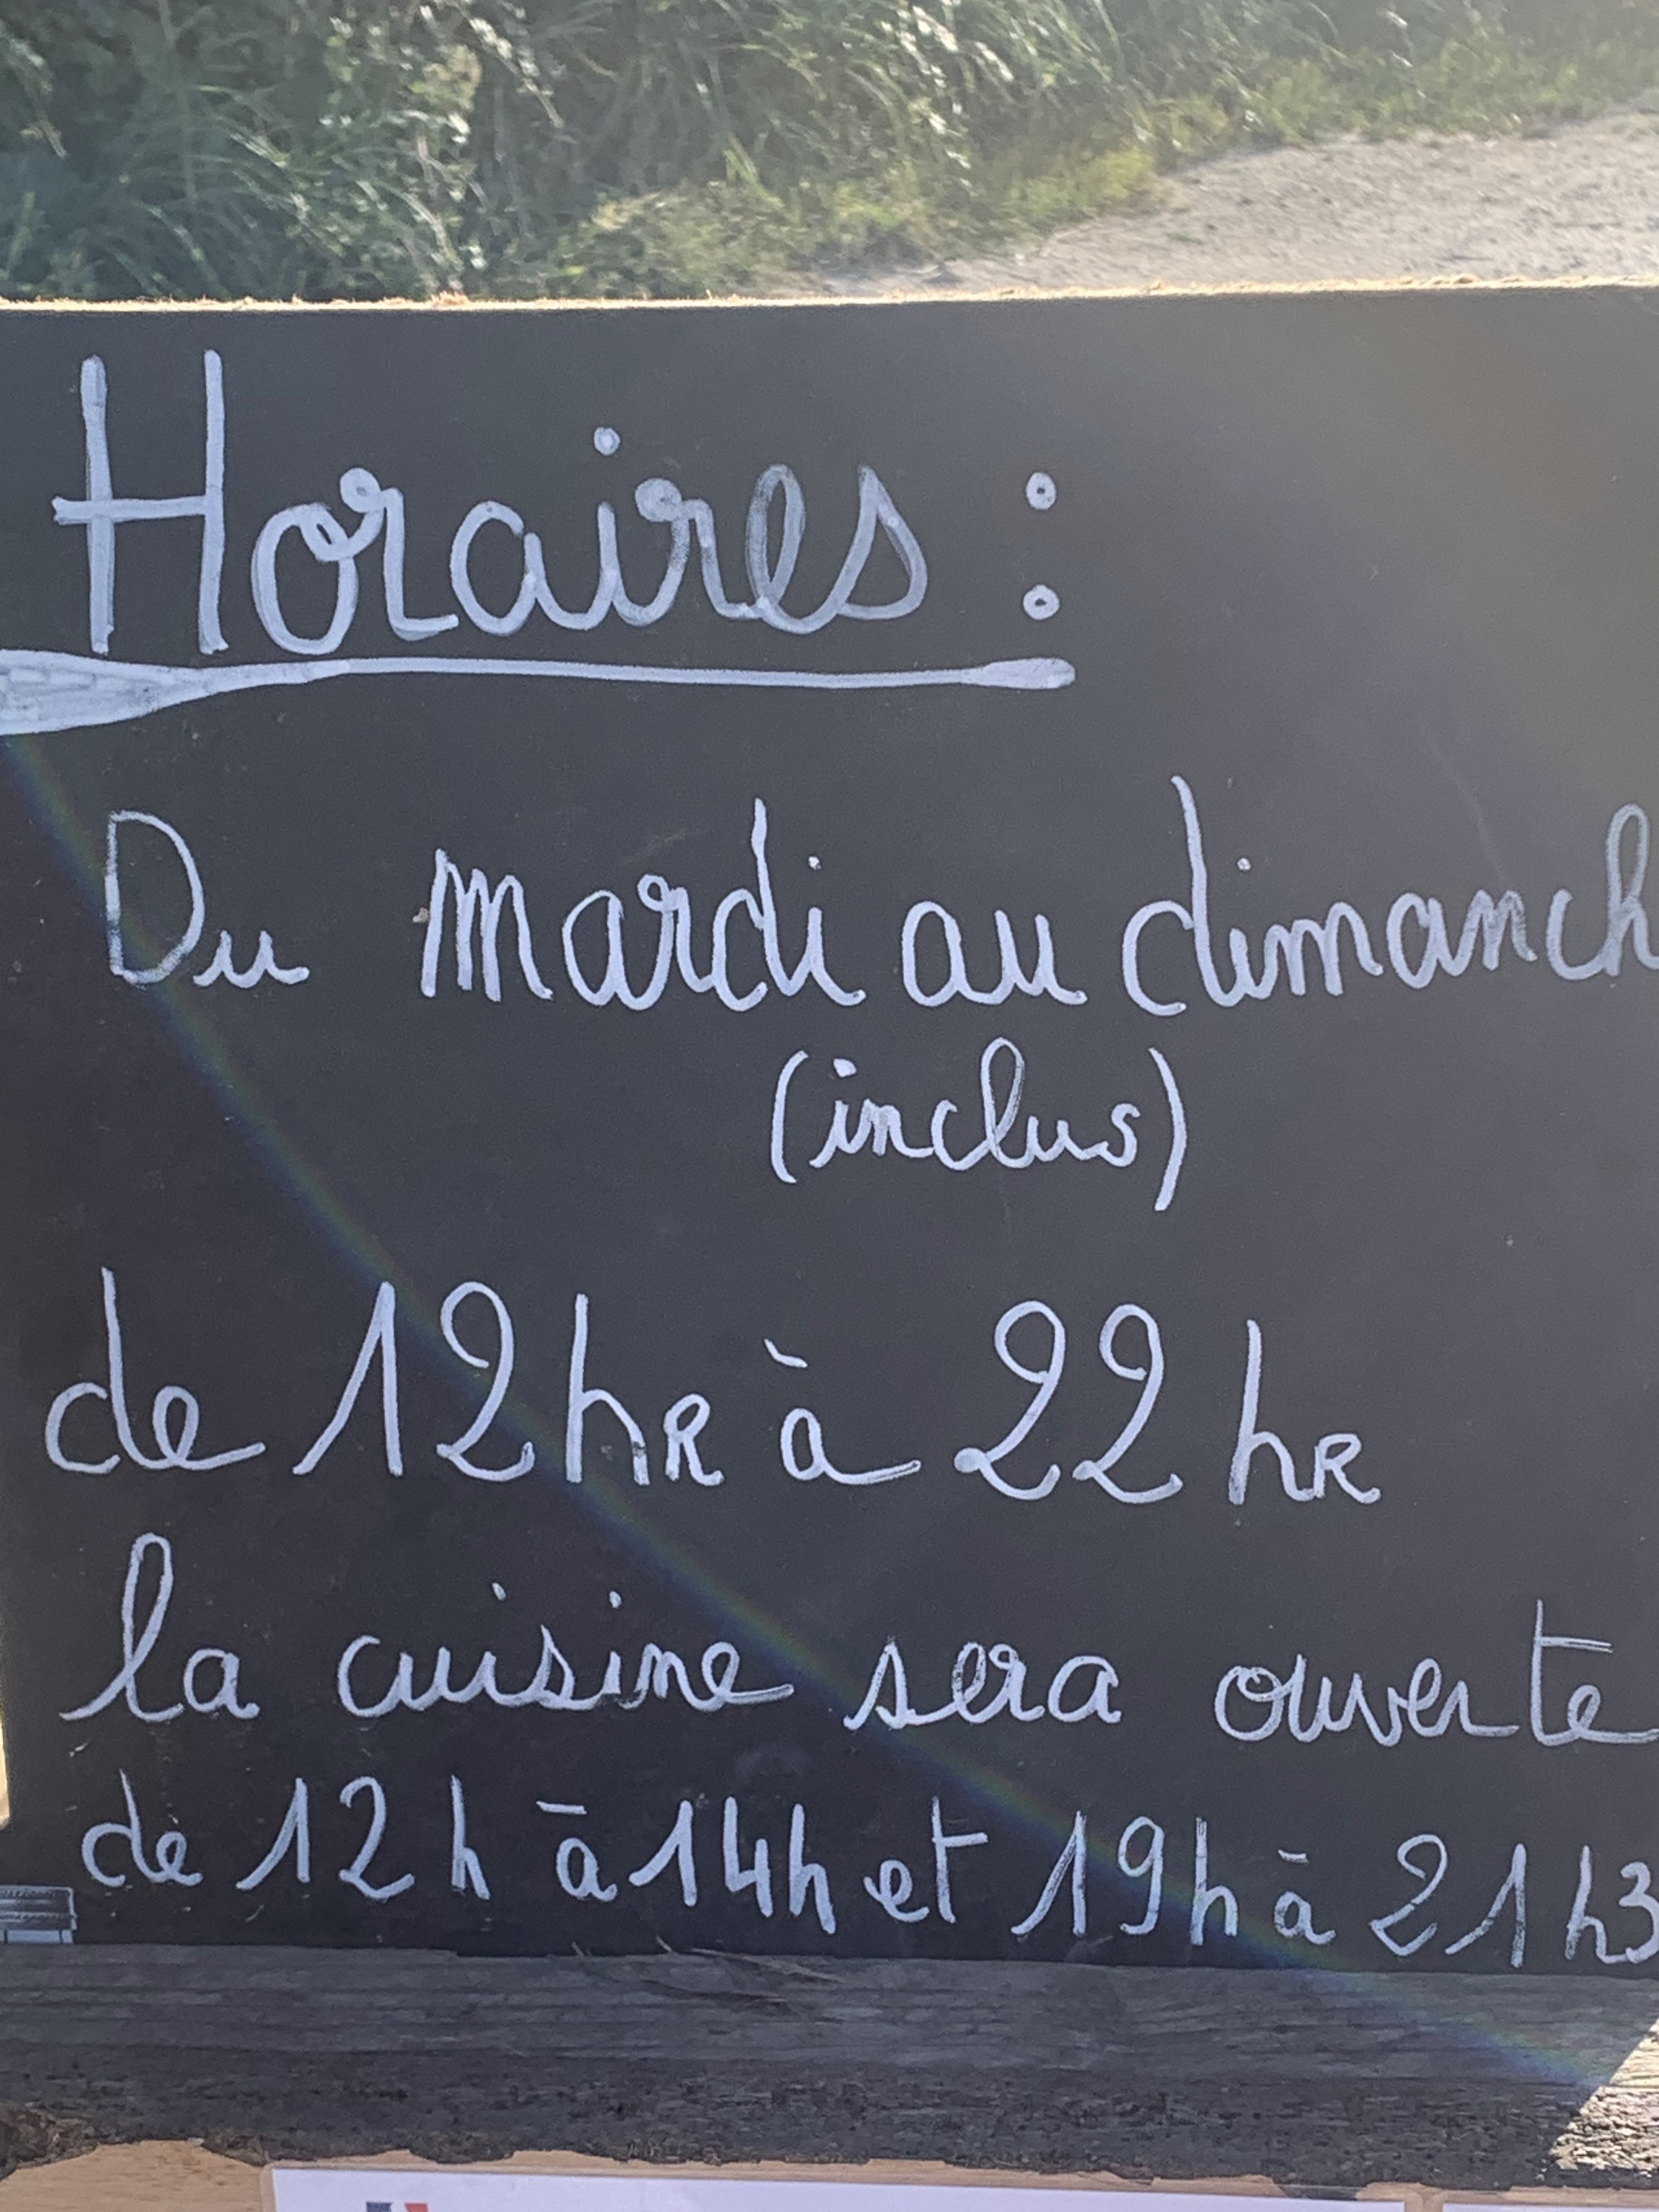 Horaires :
Du mardi au dimanch
(inclus)
de 12hR à 22hR
la cuisine sera ouverte
de 12h à 14h et 19h à 21h3